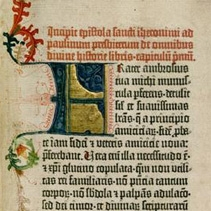 Incipit epistola sancti iheronimi ad
paulinum presbiterum de omnibus
divine historie libris. capitulū primū.
FRater ambrosius
tua michi munus-
cula pferens. detulit
sīl et suavissimas
lrās. q̄ a principio
amiciciar̄. fidē pba-
te iam fidei et veteris amicicie nova:
pferebant. Vera eni illa necessitudo ē.
et xpi glutino copulata: qm non utili-
tas rei familiaris. nō pñcia tantum
corpor̄. nō sbdola et palpās adulacō.
sed dei timor. et divinar̄